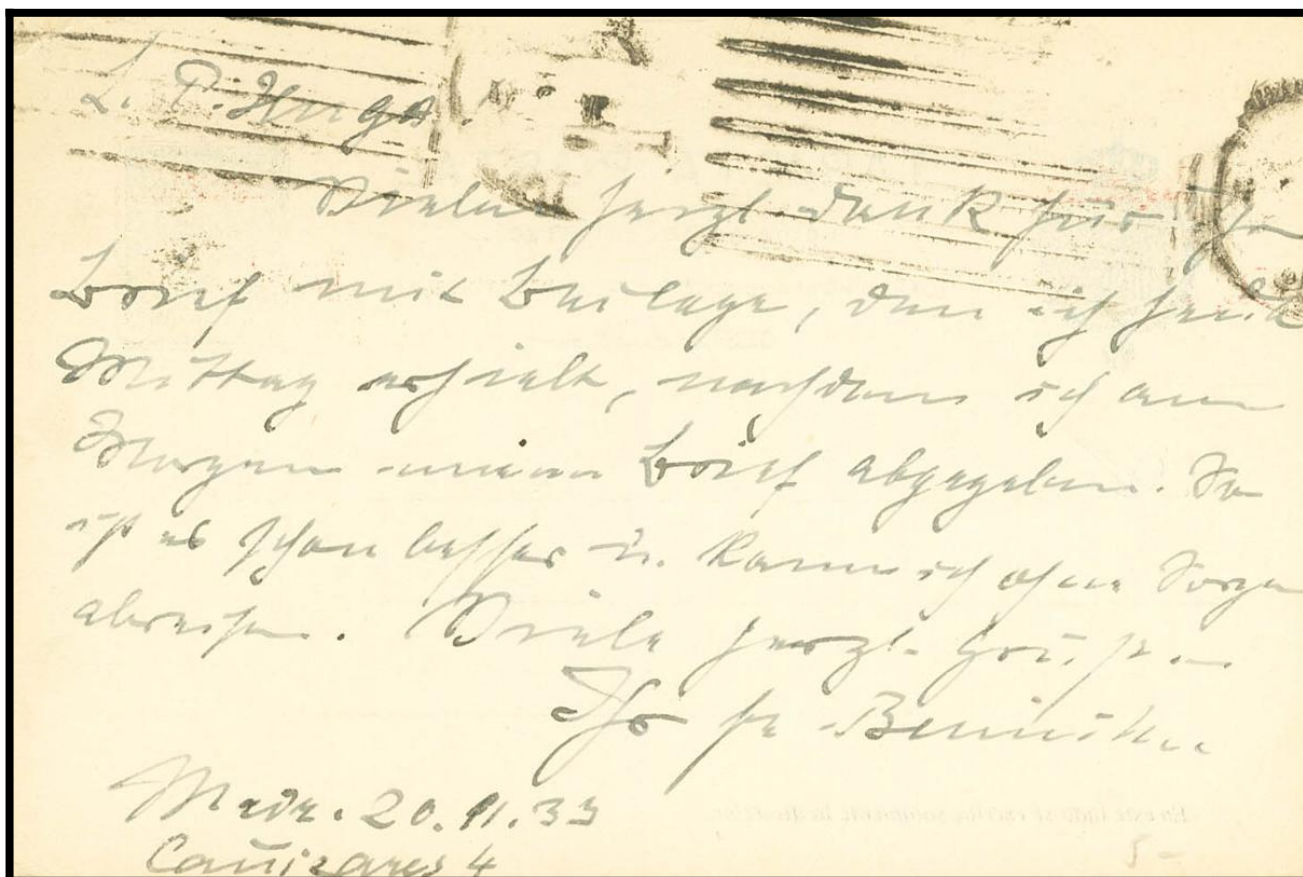 L. P. Hugo.
Vielen herzl. Dank für Ihr
Brief mit Beilage, den ich heute
Mittag erhielt, nachdem ich am
Morgen meinen Brief abgegeben. So
ist es schon besser u. kann ich ohne Sorgen
abreisen. Viele herzl. Grüße
Ihr
Madr. 20.11.33
Cañizares 4